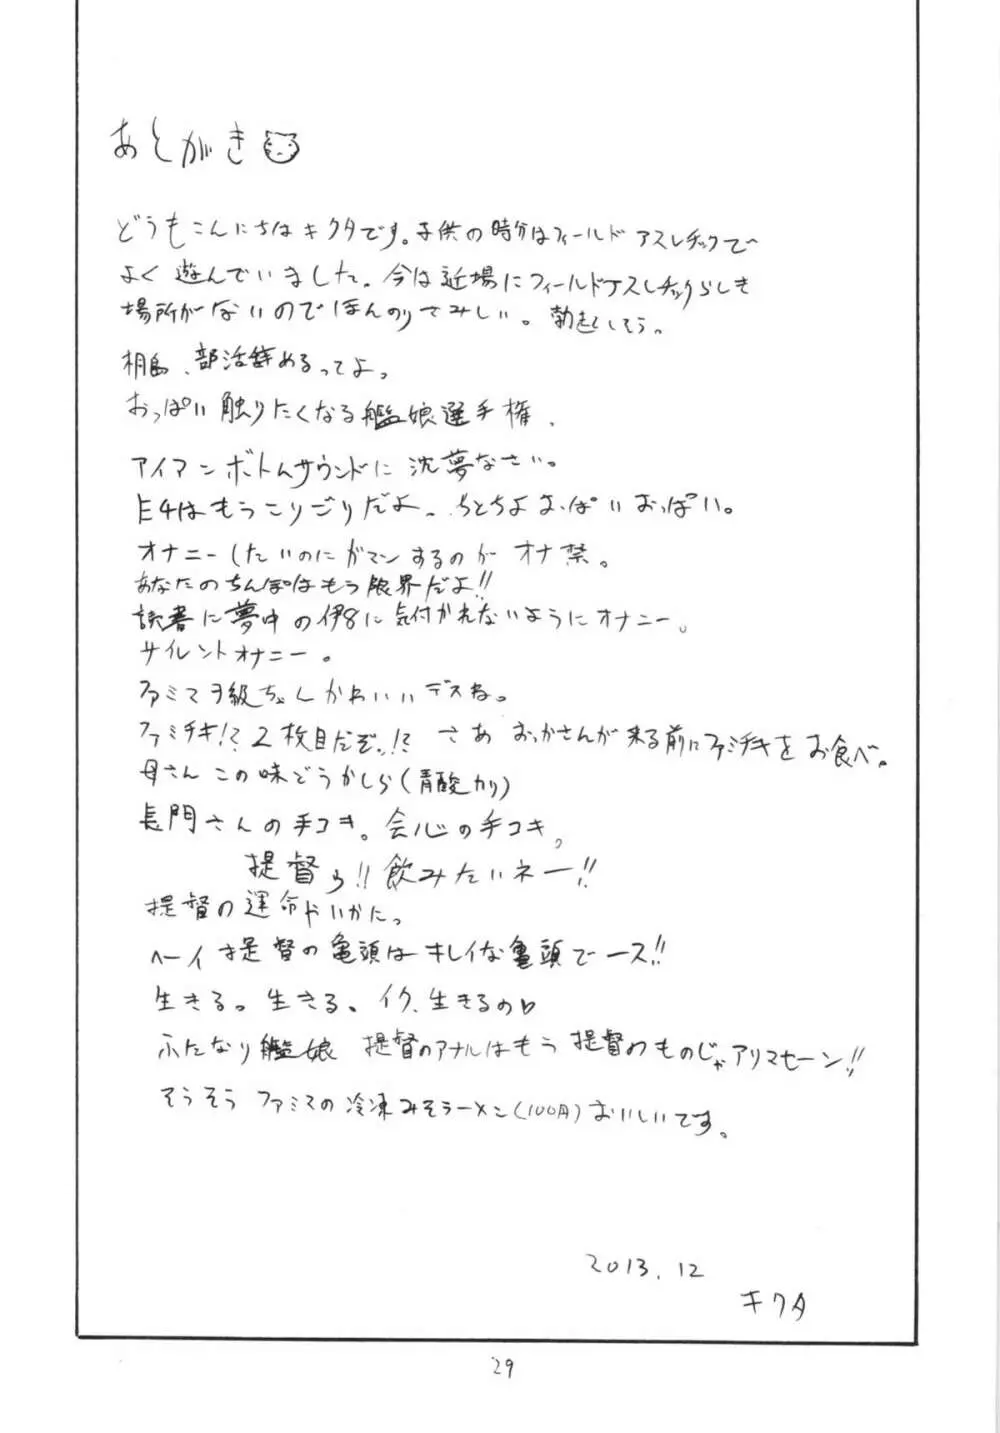 あとがき
どうもこんにちはキクタです。子供の時分はフィールドアスレチックで
よく遊んでいました。今は近場にフィールドアスレチックらしき
場所がないのでほんのりさみしい。勃起しそう。
桐島、部活辞めるってよ。
おっぱい触りたくなる艦娘選手権、
アイアンボトムサウンドに沈夢なさい。
E4はもうこりごりだよ〜ちとちよおっぱいおっぱい。
オナニーしたいのにガマンするのがオナ禁。
あなたのちんぽはもう限界だよ!!
読書に夢中の伊8に気付かれないようにオナニー。
サイレントオナニー。
ファミマヲ級ちゃんかわいいデスね。
ファミチキ!?2枚目だぞっ!?さあおっかさんが来る前にファミチキをお食べ。
母さんこの味どうかしら(青酸カリ)
長門さんの手コキ。会心の手コキ。
提督ぅ!!飲みたいネー!!
提督の運命やいかに。
ヘーイ提督の亀頭はキレイな亀頭でース!!
生きる。生きる、イク、生きるの♡
ふたなり艦娘 提督のアナルはもう提督のものじゃアリマセーン!!
そうそうファミマの冷凍みそラーメン(100円)おいしいです。
2013.12
キクタ
29